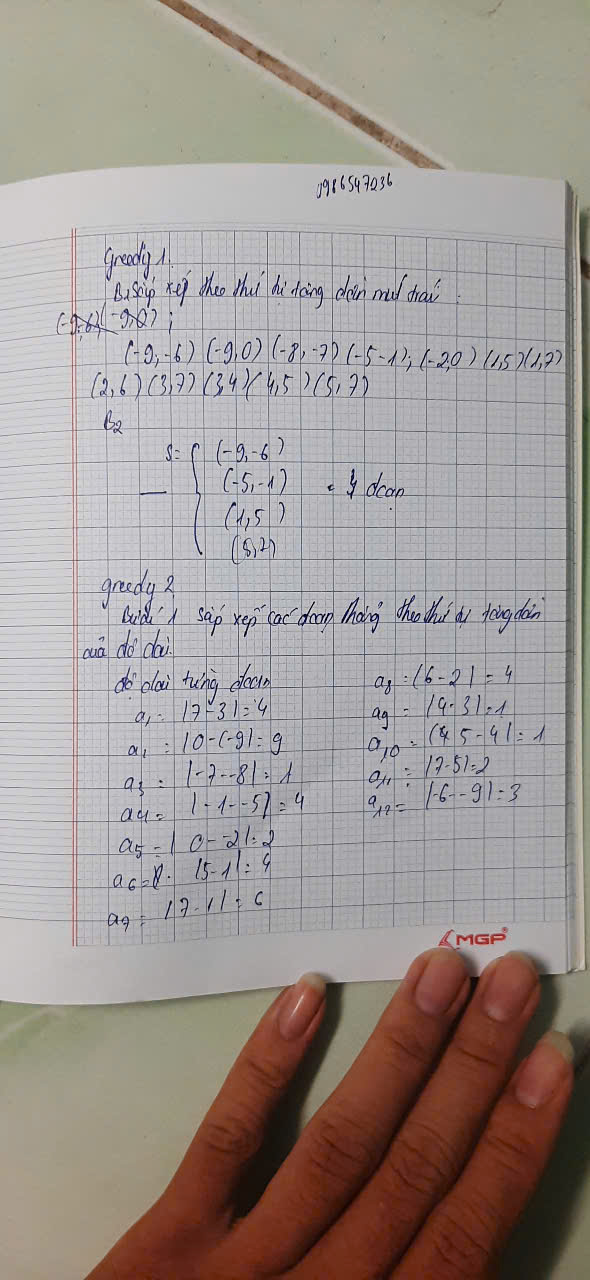 0986547236
Greedy 1.
B1 Sắp xếp theo thứ tự tăng dần mút trái :
(-9,-6) (-9,0) ;
(-9,-6) (-9,0) (-8,-7) (-5-1); (-2,0) (1,5) (1,7)
(2,6) (3,7) (3,4) (4,5) (5,7)
B2
S = { (-9,-6)
(-5,-1) = 4 đoạn
(1,5)
(5,7)
greedy 2
Bước 1 sắp xếp các đoạn thẳng theo thứ tự tăng dần
của độ dài.
độ dài từng đoạn
a1 = |7-3| = 4
a1 = |0-(-9| = 9
a3 = |-7--8| = 1
a4 = |-1--5| = 4
a5 = | 0--2| = 2
a6 = |5-1| = 4
a7 = |7-1| = 6
a8 = |6-2| = 4
a9 = |4-3| = 1
a10 = |5-4| = 1
a11 = |7-5| = 2
a12 = |-6--9| = 3
MGP